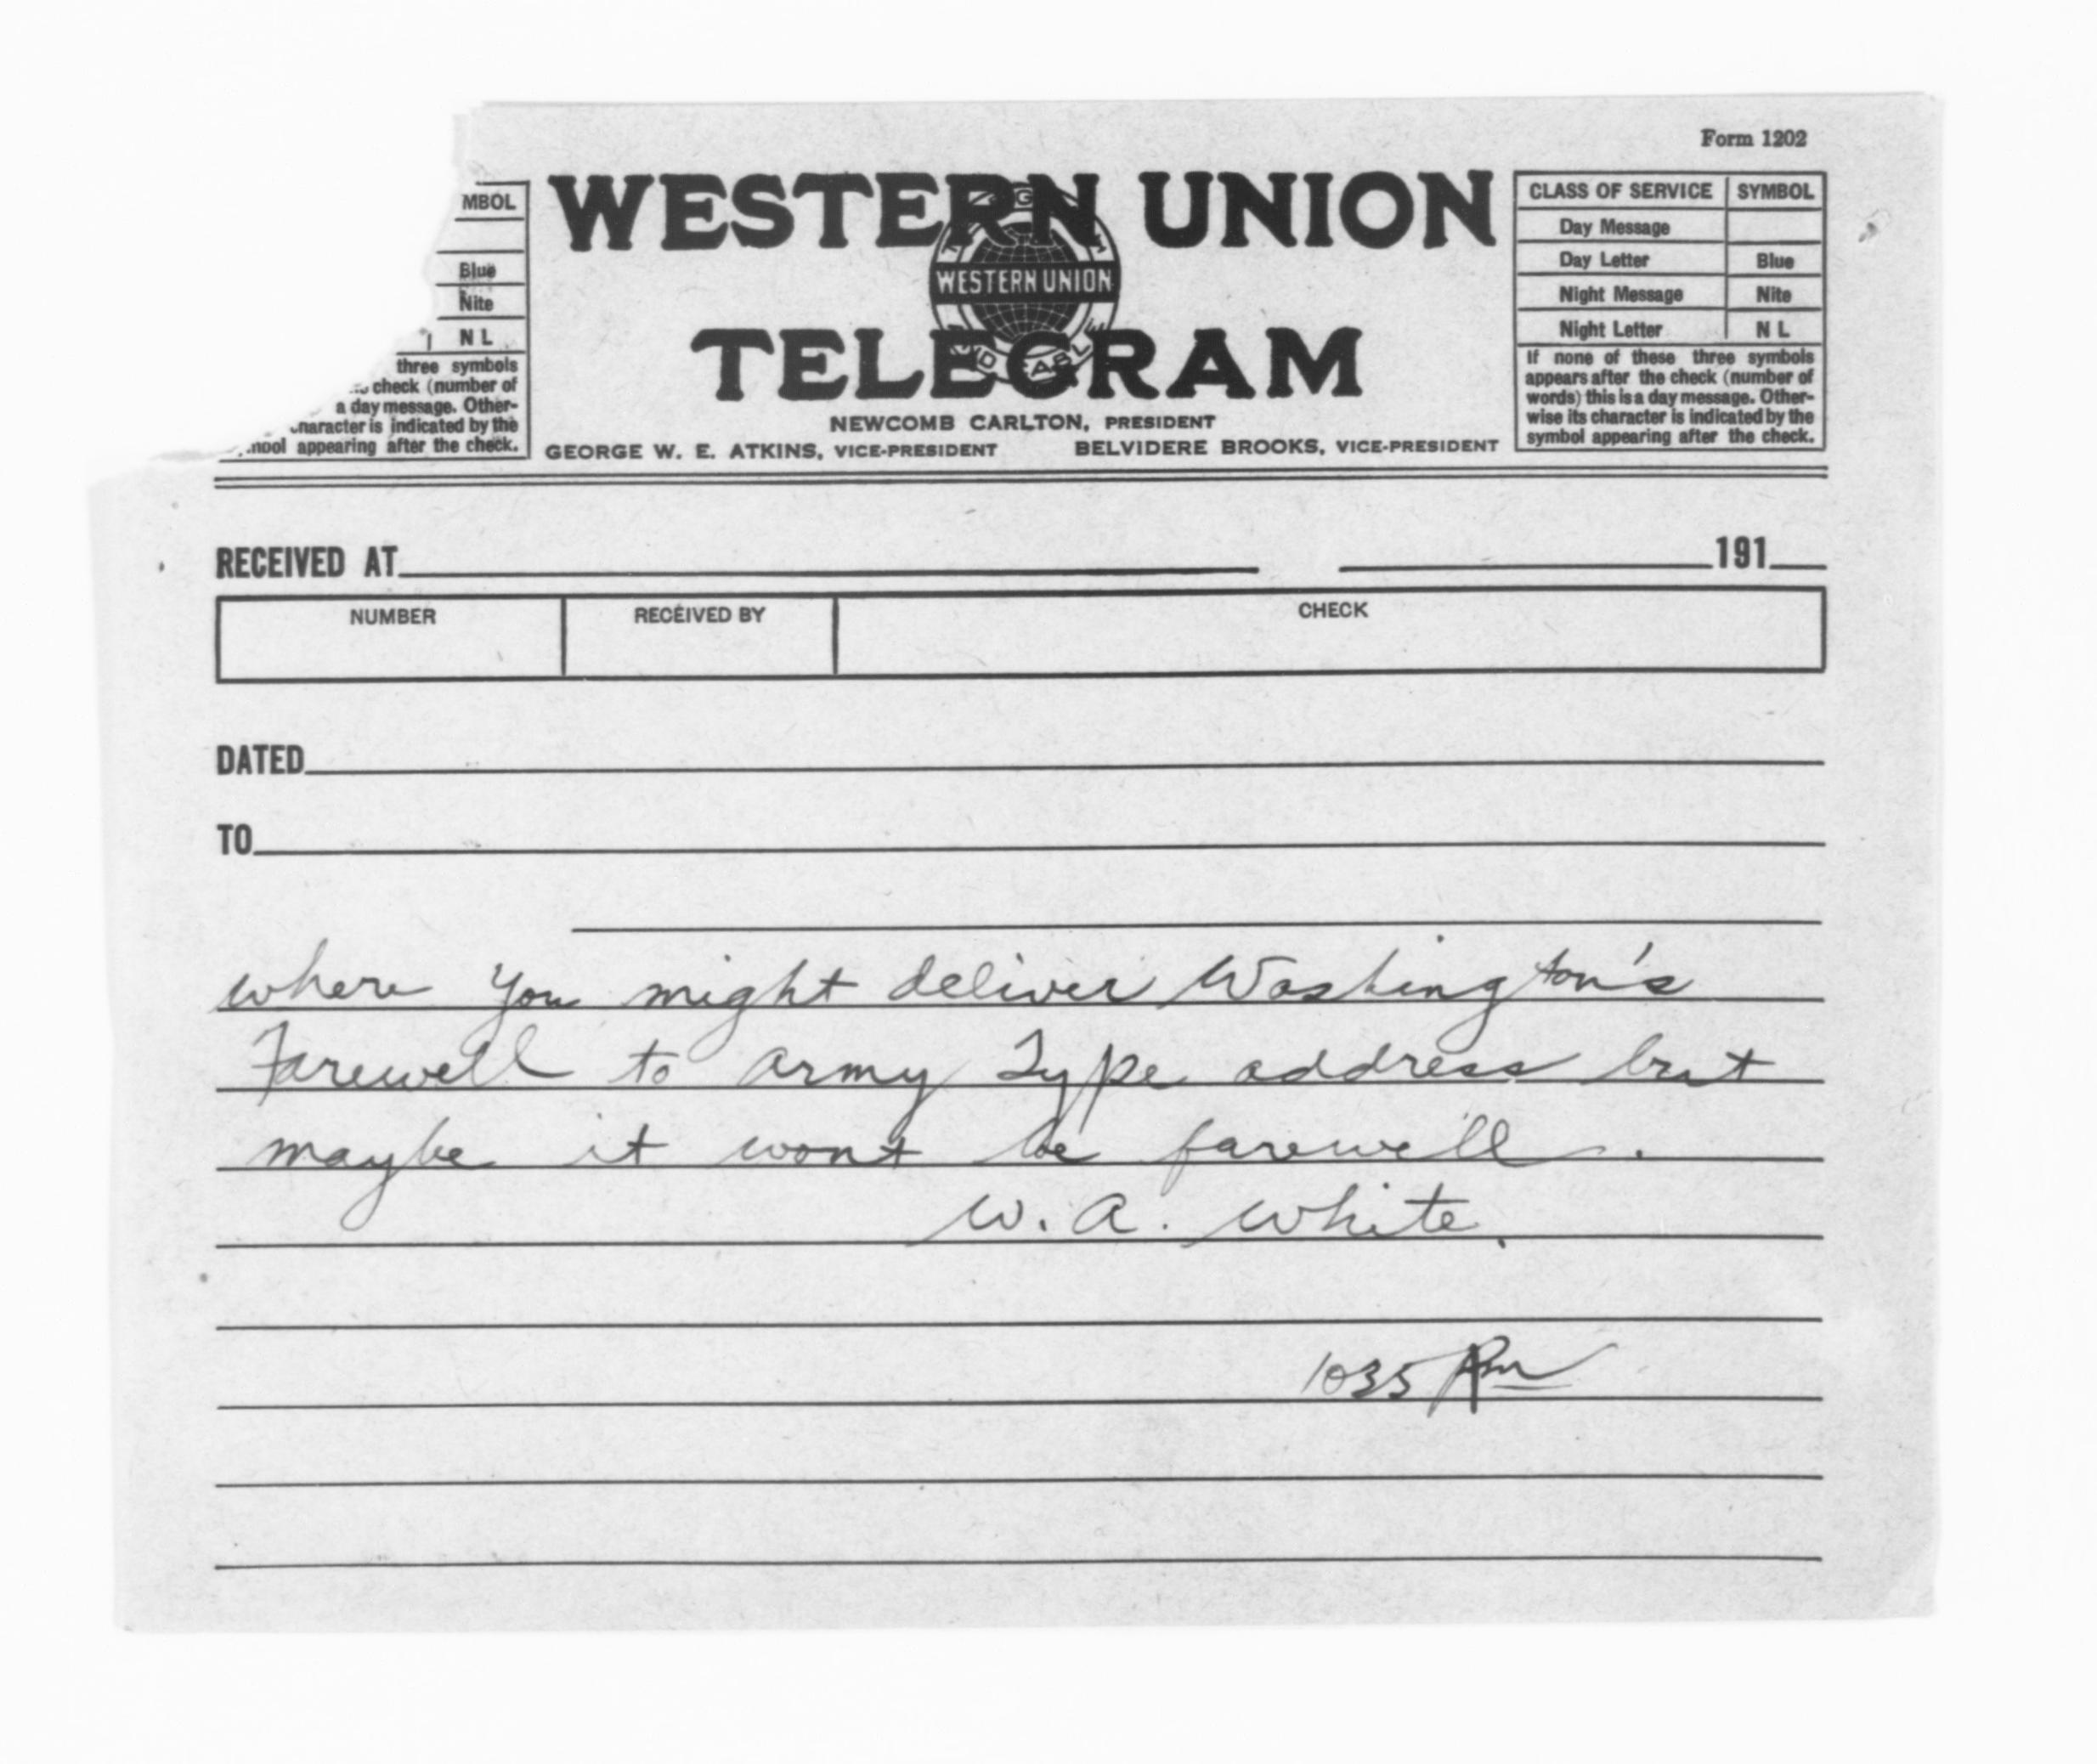 Form 1202
MBOL
Blue
Nite
N L
three symbols
check (number of
a day message. Other-
character is indicated by the
appearing after the check.
WESTERN UNION
WESTERN UNION
TELEGRAM
NEWCOMB CARLTON, PRESIDENT
GEORGE W. E. ATKINS, VICE-PRESIDENT BELVIDERE BROOKS, VICE-PRESIDENT
CLASS OF SERVICE SYMBOL
Day Message
Day Letter Blue
Night Message Nite
Night Letter N L
If none of these three symbols
appears after the check (number of
words) this is a day message. Other-
wise its character is indicated by the
symbol appearing after the check.
RECEIVED AT 191
NUMBER RECEIVED BY CHECK
DATED
TO
where you might deliver Washington's
Farewell to army Type address but
maybe it wont be farewell.
W. A. White.
1035 Pm